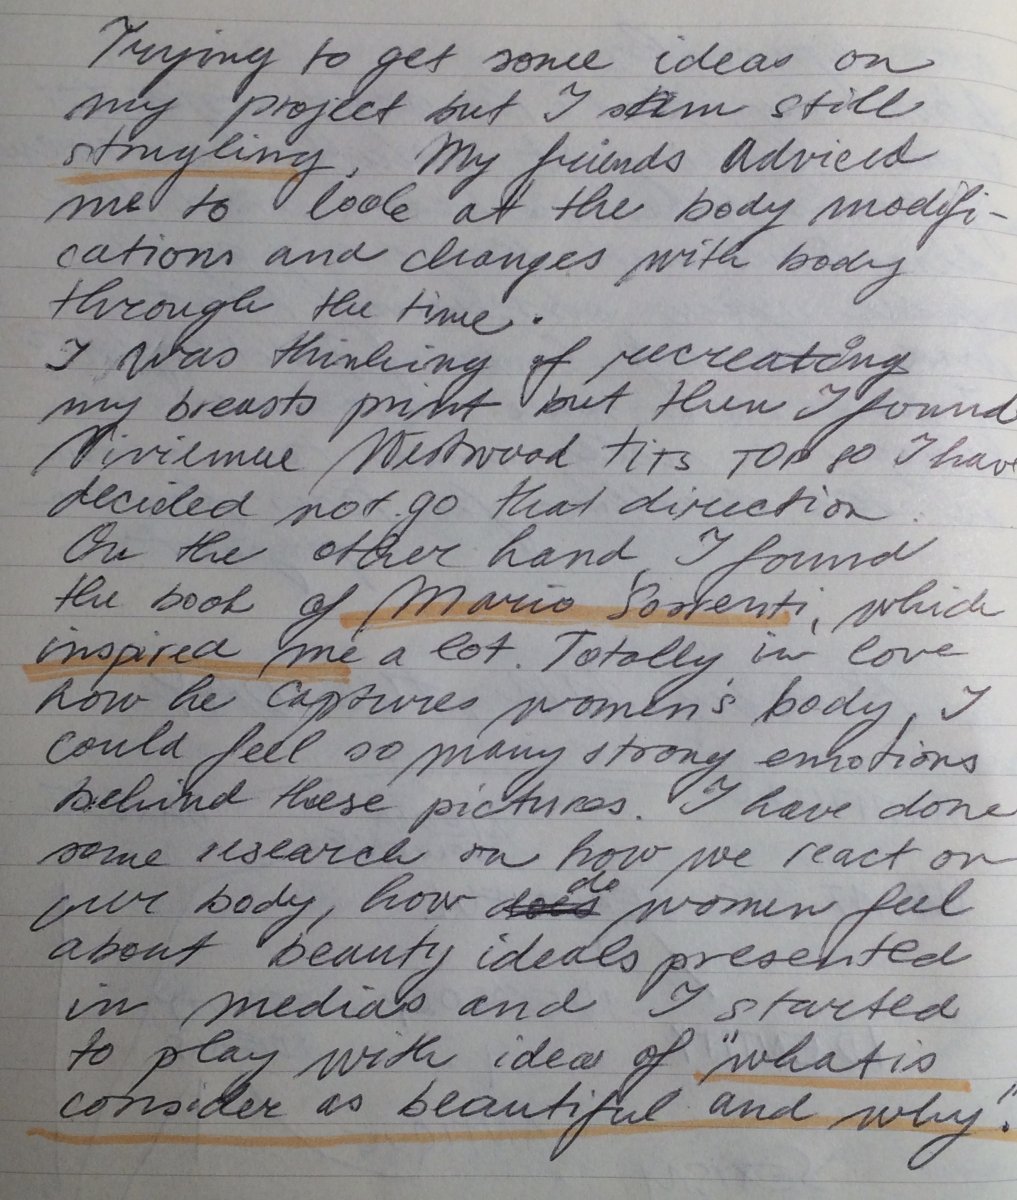 Trying to get some ideas on
my project but I am still
strugling. My friends adviced
me to look at the body modifi-
cations and changes with body
through the time.
I was thinking of recreating
my breasts print but then I found
Vivienne Westwood TITS TOP so I have
decided not go that direction.
On the other hand, I found
the book of Mario Sorrenti, which
inspired me a lot. Totally in love
how he captures women's body, I
could feel so many strong emotions
behind these pictures. I have done
some research on how we react on
our body, how do women feel
about beauty ideals presented
in medias and I started
to play with idea of "what is
consider as beautiful and why".